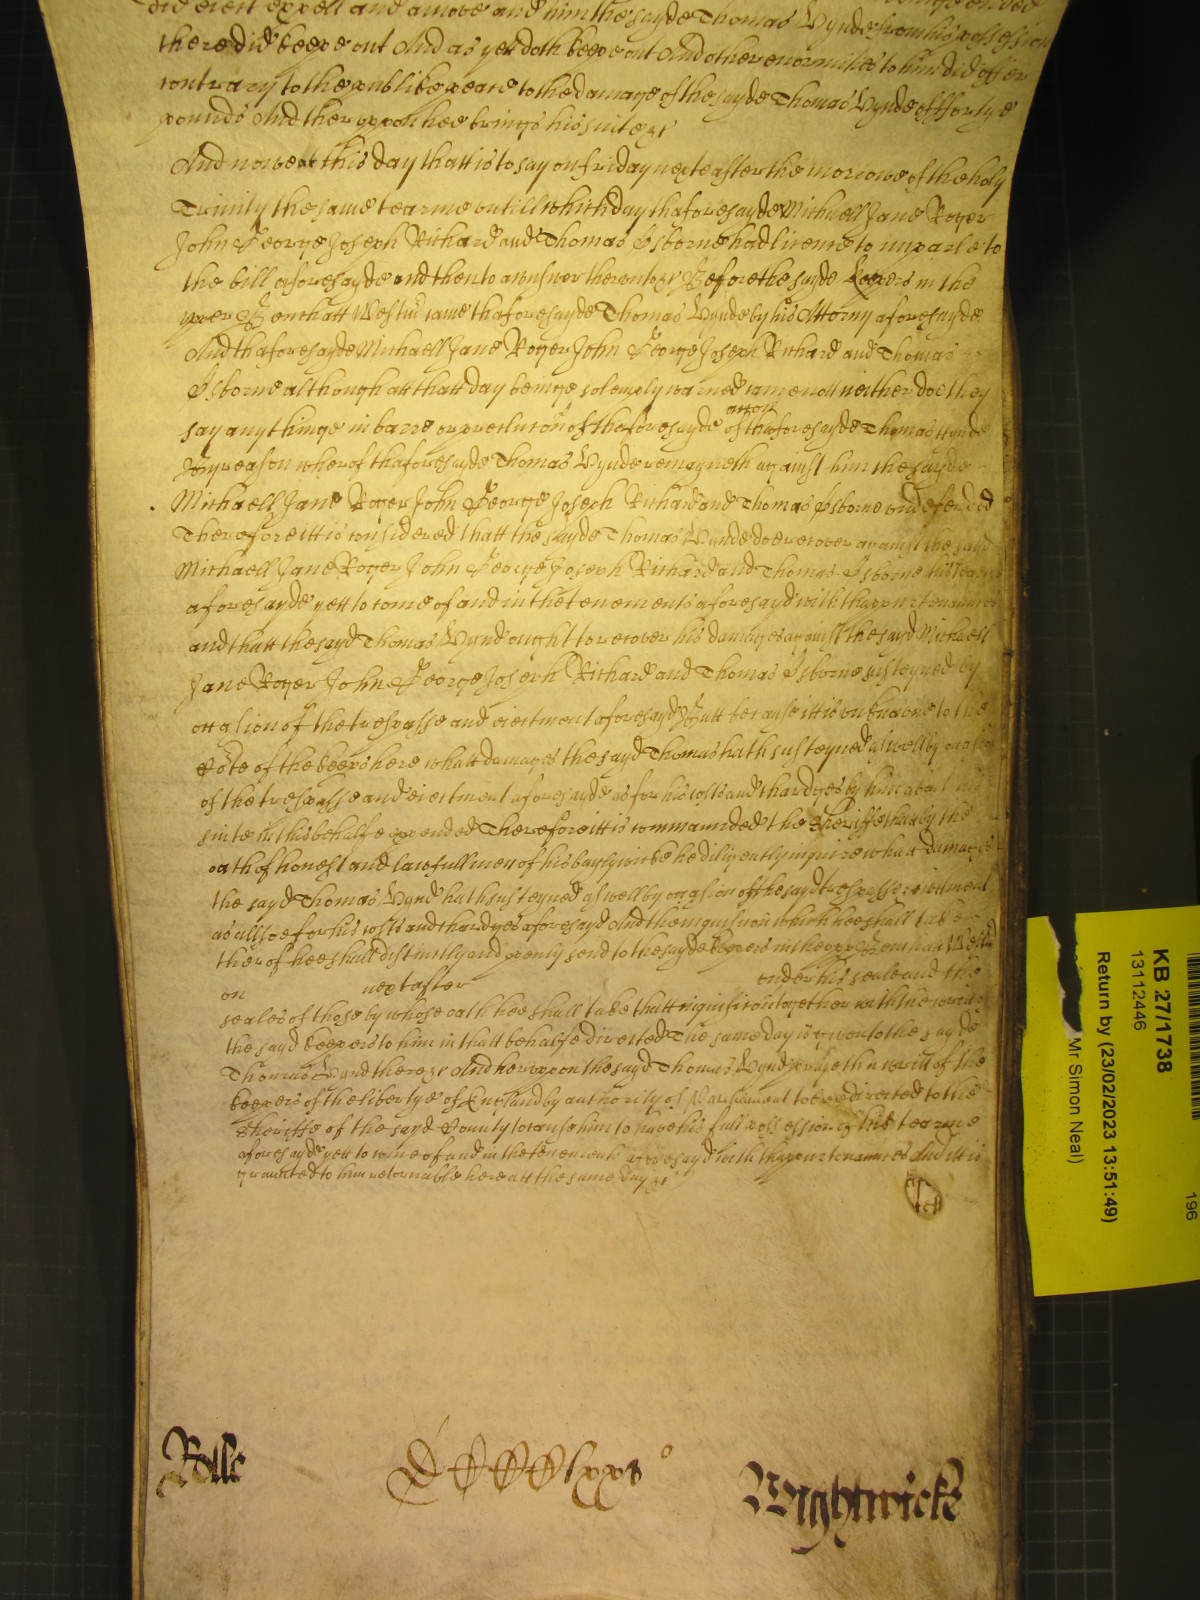 did eiect expell and amove and him the sayde Thomas Wynde from his possession
there did keepe out And as yett doth keepe out And other enormities to him did offer
contrary to the publike peace to the damage of the sayde Thomas Wynde of fortye
pounds And therupon hee brings his suite &c
And nowe att this day thatt is to say on friday nexte after the morrowe of the holy
Trinity the same tearme untill which day thaforesayde Michaell Jane Roger
John George Joseph Richard and Thomas Osborne had licence to imparle to
the bill aforesayde and then to answer therunto &c Before the sayde keepers in the
upper Bench att Westm came thaforesayde Thomas Wynde by his Attorny aforesayde
And thaforesayde Michaell Jane Roger John George Joseph Richard and Thomas
Osborne although att thatt day beinge solemply warned came nott neither doe they
say any thinge in barre or preclution of thaforesayde accon of thaforesayde Thomas Wynde
By reason wherof thaforesayde Thomas Wynde remayneth against him the sayde
Michaell Jane Roger John George Joseph Richard and Thomas Osborne undefended
Therefore itt is considered thatt the sayde Thomas Wynde doe recover against the sayd
Michaell Jane Roger John George Joseph Richard and Thomas Osborne his tearme
aforesayde yett to come of and in the tenements aforesayd with thappurtenances
and thatt the sayd Thomas Wynd ought to recover his damages against the sayd Michaell
Jane Roger John George Joseph Richard and Thomas Osborne susteyned by
occasion of the trespasse and eiectment aforesayd Butt because itt is unknowne to the
Cote of the keeps here whatt damages the sayd Thomas hath susteyned aswell by occasion
of the trespasse and eiectment aforesayde as for his costs and chardges by him about his
suite in this behalfe expended Therefore itt is commaunded the Sheriffe that by the
oath of honest and lawfull men of his baylywicke he diligently inquire whatt damages
the sayd Thomas Wynd hath susteyned aswell by occasion of the sayd trespasse & eiectment
as allsoe for his costs and chardges aforesayd And the inquisition which hee shall take
therof hee shall distinctly and openly send to the sayde keepers in the upper Bench att Westm
on next after under his seale and the
seales of those by whose oath hee shall take thatt inquisition together with the writt of
the sayd keepers to him in thatt behalfe directed The same day is given to the sayde
Thomas Wynd there &c And herupon the sayd Thomas Wynd prayeth a writt of the
keepers of the libertye of England by authority of Parliament to bee directed to the
Sheriffe of the sayd County to cause him to have his full possession of his tearme
aforesayde yett to come of and in the tenements aforesayd with thappurtenances And itt is
graunted to him retornable here att the same day &c
Rolle
Wightwicke
KB 27/1738
13112446
Return by (23/02/2023 13:51:49)
Mr Simon Neal)
196